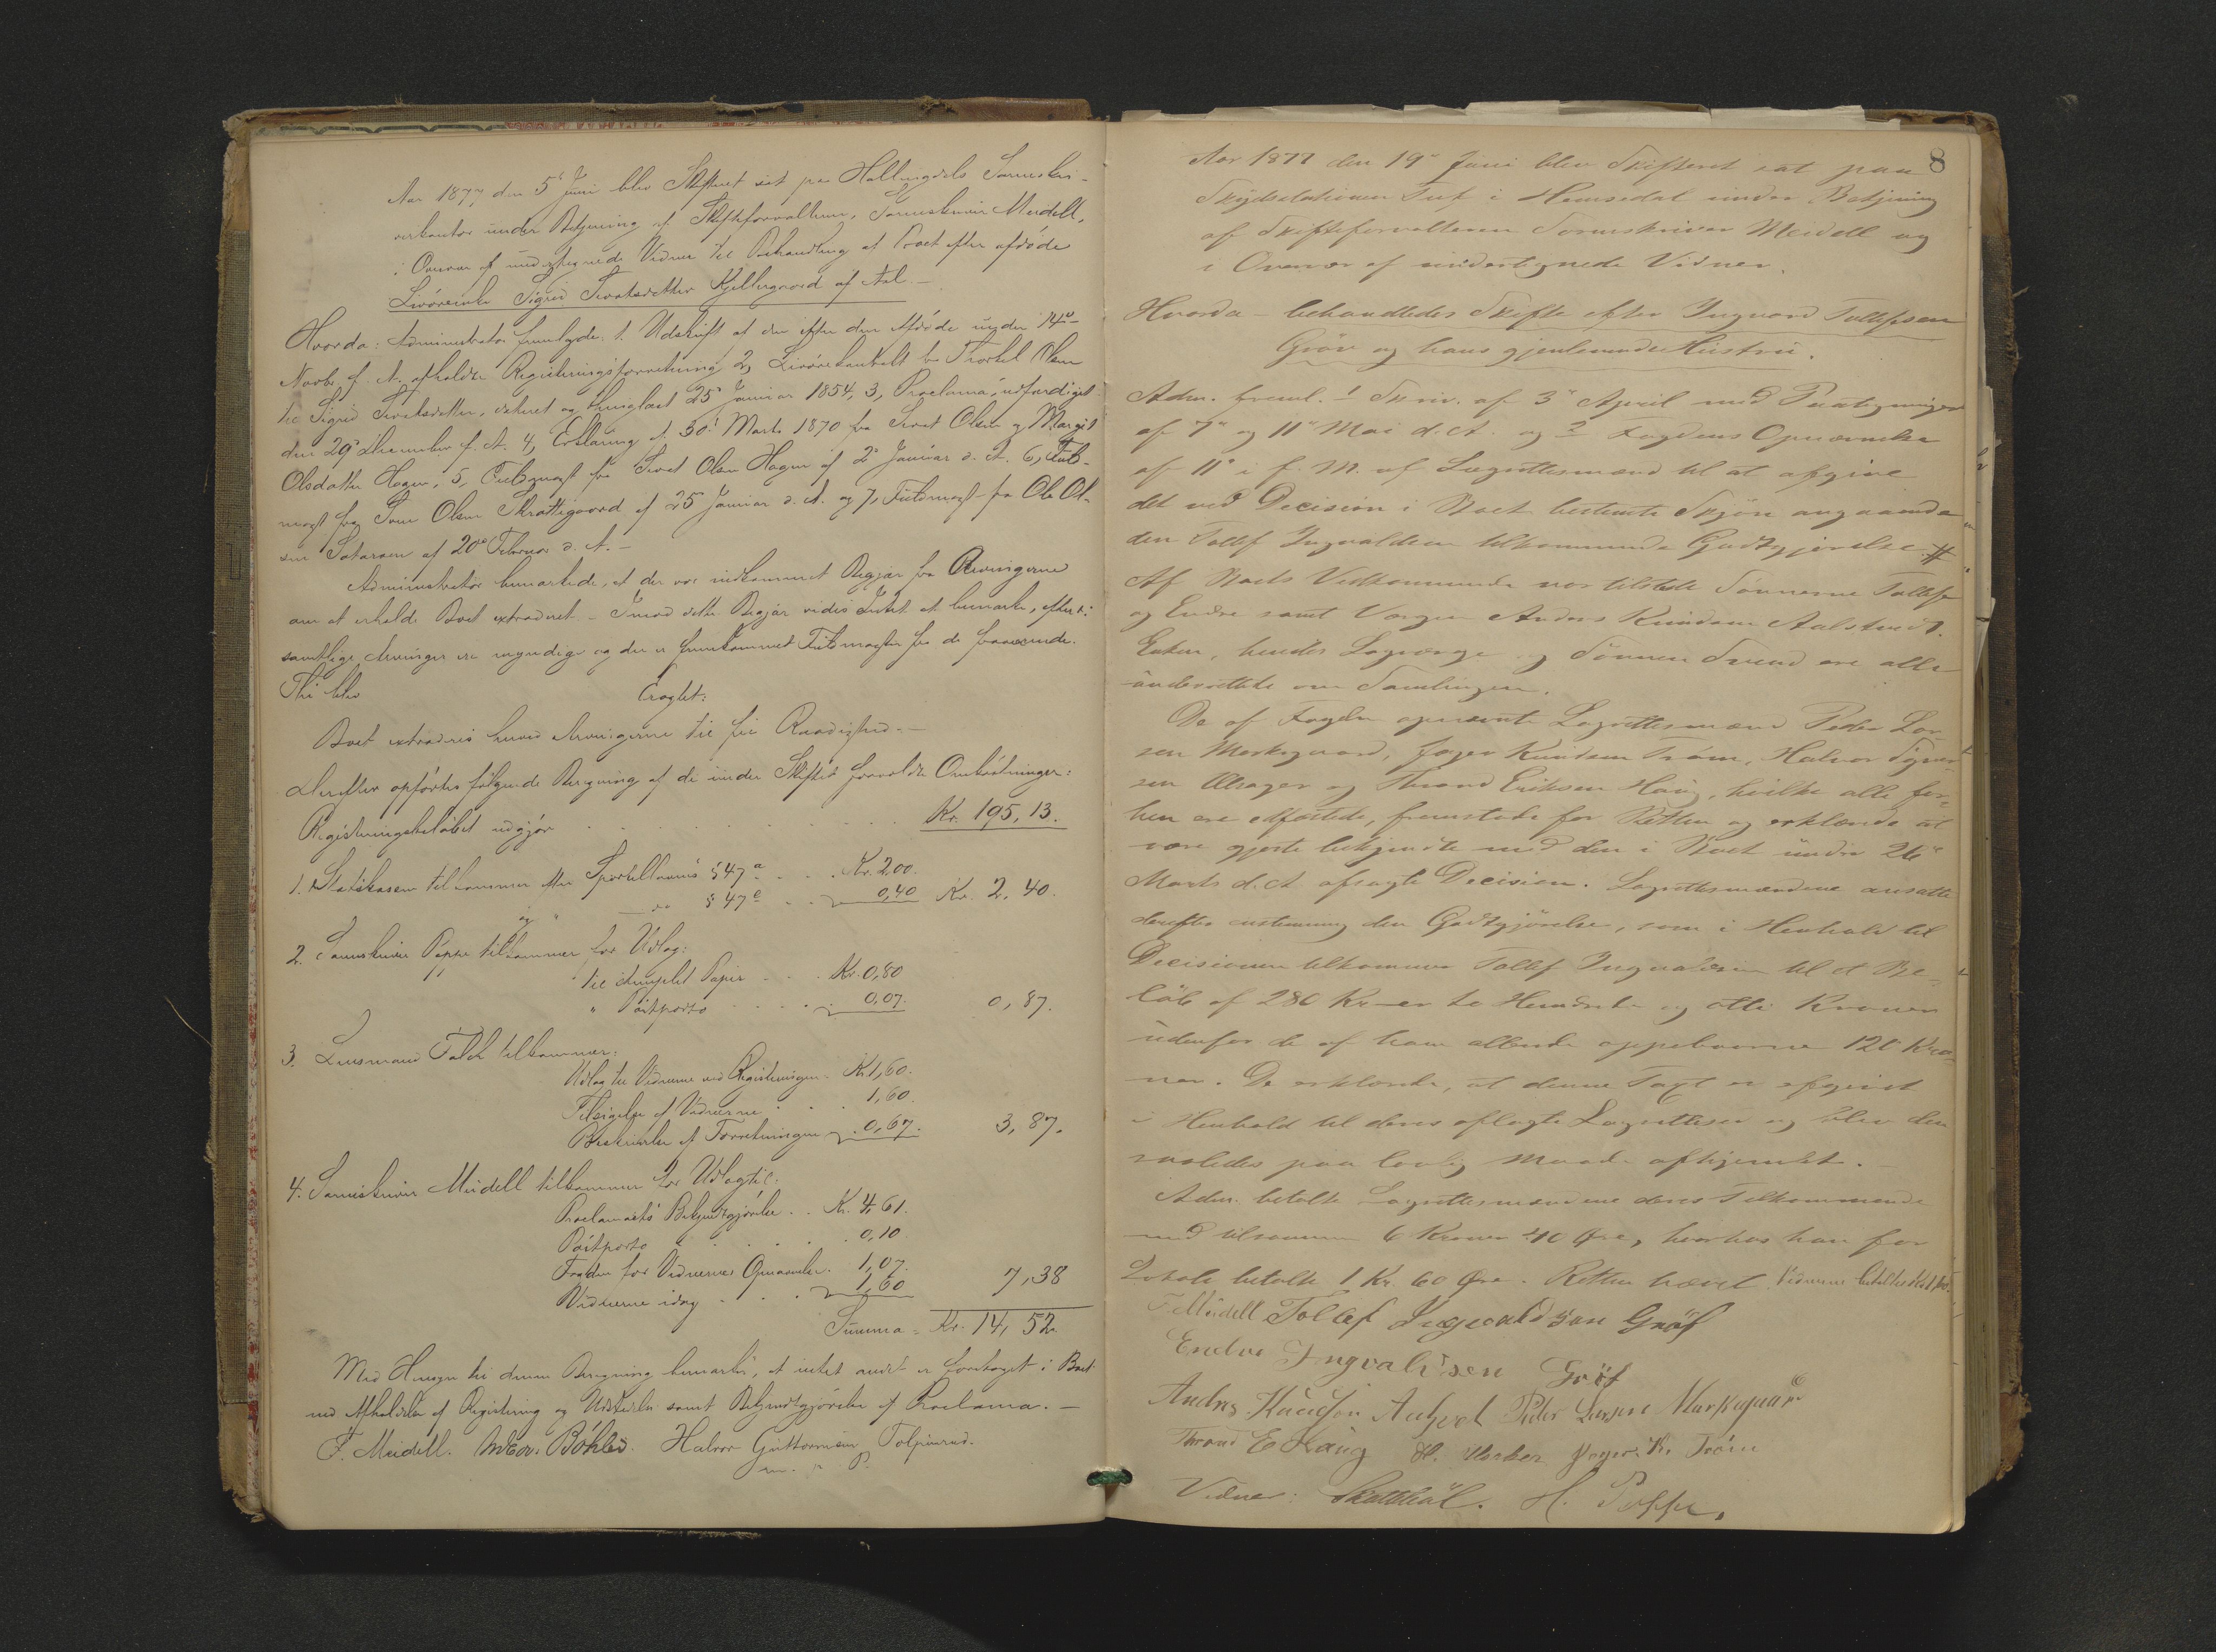 Aar 1877 den 5te Juni blev Skifteret sat paa Hallingdals Sorenskri-
verkontor under Betjening af Skifteforvalteren, Sorenskriver Meidell,
i Overvær af undertegnede Vidner til Behandling af Boet efter afdøde
Livøreenke Sigrid Sivertsdatter Kjellergaard af Aal. –
Hvorda: Administrator fremlagde: 1. Udskrift af den efter den Afdøde under 14de
Novbr. f. A. afholdte Registreringsforretning 2, Livørekontrakt fra Thorkel Olsen
til Sigrid Sivertsdatter, dateret og thinglæst 25de Januar 1854, 3, Proclama, udfærdiget
den 29de December f. A. 4, Erklæring af 30te Marts 1870 fra Sivert Olsen og Margit
Olsdatter Hagen, 5, Fuldmagt fra Sivert Olsen Hagen af 2de Januar d. A. 6, Fuld-
magt fra Tom Olsen Skrattegaard af 25de Januar d. A. og 7, Fuldmagt fra Ole Ol-
sen Sataroen af 20de Februar d. A. –
Administrator bemærkede, at der var indkommet Begjær fra Arvingerne
om at erholde Boet extraderet. – Imod dette Begjær vides Intet at bemærke, efterdi
samtlige Arvinger ere myndige og der er fremkommet Fuldmagter fra de fraværende.
Thi blev Eragtet:
Boet extraderes herved Arvingerne til fri Raadighed. –
Derefter opførtes følgende Beregning af de under Skiftet forvoldte Omkostninger:
Registreringsbeløbet udgjør . . . . Kr. 195,13.
1. Statskassen tilkommer efter Sportellovens § 47 a . . . Kr. 2,00.
og " do § 47 e . . 0,40 Kr. 2,40.
2. Sorenskriver Poppe tilkommer for Udlag:
til stemplet Papir . . . Kr. 0,80
" Postporto . . . . 0,07. 0,87.
3. Lensmand Falch tilkommer:
Udlag til Vidnerne ved Registreringen Kr. 1,60.
Tilsigelse af Vidnerne . . . 1,60.
Beskrivelse af Forretningen . 0,67. 3,87.
4. Sorenskriver Meidell tilkommer for Udlag til:
Proclamaets Bekjendtgjørelse . . Kr. 4,61.
Postporto . . . . . 0,10
Fogden for Vidnernes Opnævnelse. 1,07.
Vidnerne idag . . . 1,60 7,38
Summa = Kr. 14,52
Med Hensyn til denne Beregning bemærkes, at intet andet er foretaget i Boet
end Afholdelse af Registrering og Udstedelse samt Bekjendtgjørelse af Proclama. –
F. Meidell. Böhler. Halvor Guttormsen Tolpinrud.
m. " P.
8
Aar 1877 den 19de Juni blev Skifteret sat paa
Skydsstationen Tuf i Hemsedal under Betjening
af Skifteforvalteren Sorenskriver Meidell og
i Overvær af undertegnede Vidner.
Hvorda – behandledes Skifte efter Ingvard Tollefsen
Gröv og hans gjenlevende Hustru.
Adm. freml. 1 Skriv. af 3de April med Paategninger
af 7de og 11te Mai d. A. og 2 Fogdens Opnævnelse
af 11te i f. M. af Lagrettesmænd til at afgive
det ved Decision i Boet bestemte Skjøn angaaende
den Tollef Ingvaldsen tilkommende Godtgjørelse. #
Af Boets Vedkommende var tilstede Sønnerne Tollef
og Endre samt Vergen Anders Knudsen Aalstvedt.
Enken, hendes Lagverge og Sönnen Svend ere alle
underrettede om Samlingen.
De af Fogden opnævnte Lagrettesmænd Peder Lar-
sen Markegaard, Jøger Knudsen Trøim, Halvor
sen Ulsager og Thrond Eriksen Haug, hvilke alle for-
hen ere edfæstede, fremstode for Retten og erklærede at
være gjorte bekjendte med den i Boet under 26de
Marts d. A. afsagte Decision. Lagrettesmændene ansatte
derefter enstemmig den Godtgjørelse, som i Henhold til
Decisionen tilkommer Tollef Ingvaldsen til et Be-
løb af 280 Kr – er to Hundrede og otti Kroner
udenfor de af ham allerede oppebaarne 120 Kro-
ner. De erklærede, at denne Taxt er afgivet
i Henhold til deres aflagte Lagrettesed og blev den
saaledes paa lovlig Maade afhjemlet.
Adm. betalte Lagrettesmændene deres Tilkommende
med tilsammen 6 Kroner 40 Øre, hvorhos han for
Lokale betalte 1 Kr. 60 Øre. Retten hævet. Vidnerne betaltes
F. Meidell Tollef Ingvaldsøn Gröf
Endre Ingvaldsen Gröf
Andres Knudson Peder Larsen Markegaar
Thrond E Haug H. Jøger Kn Tröim
Vidner: Skattebøl. H. Poppe.